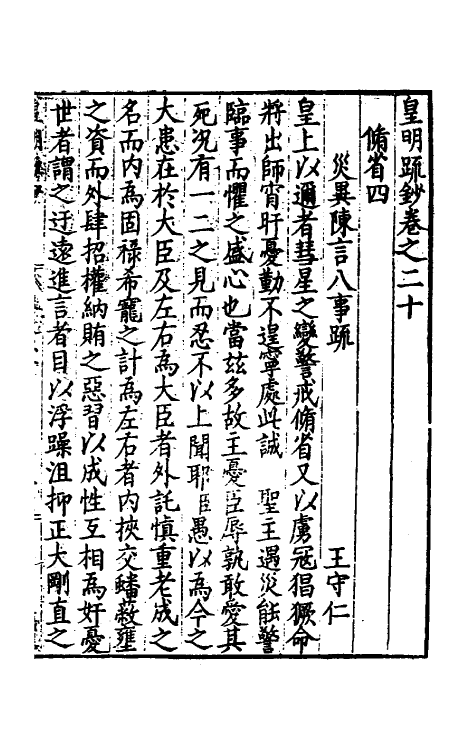 皇明疏鈔卷之二十
脩省四
災異陳言八事疏 王守仁
皇上以邇者彗星之變警戒脩省又以虜寇猖獗命
將出師宵旰憂勤不遑寧處此誠 聖主遇災能警
臨事而懼之盛心也當茲多故主憂臣辱孰敢愛其
死況有一二之見而忍不以上聞耶臣愚以為今之
大患在於大臣及左右為大臣者外託慎重老成之
名而內為固祿希寵之計為左右者內挾交蟠蔽壅
之資而外肆招權納賄之惡習以成性互相為奸憂
世者謂之迂遠進言者目以浮躁沮抑正大剛直之